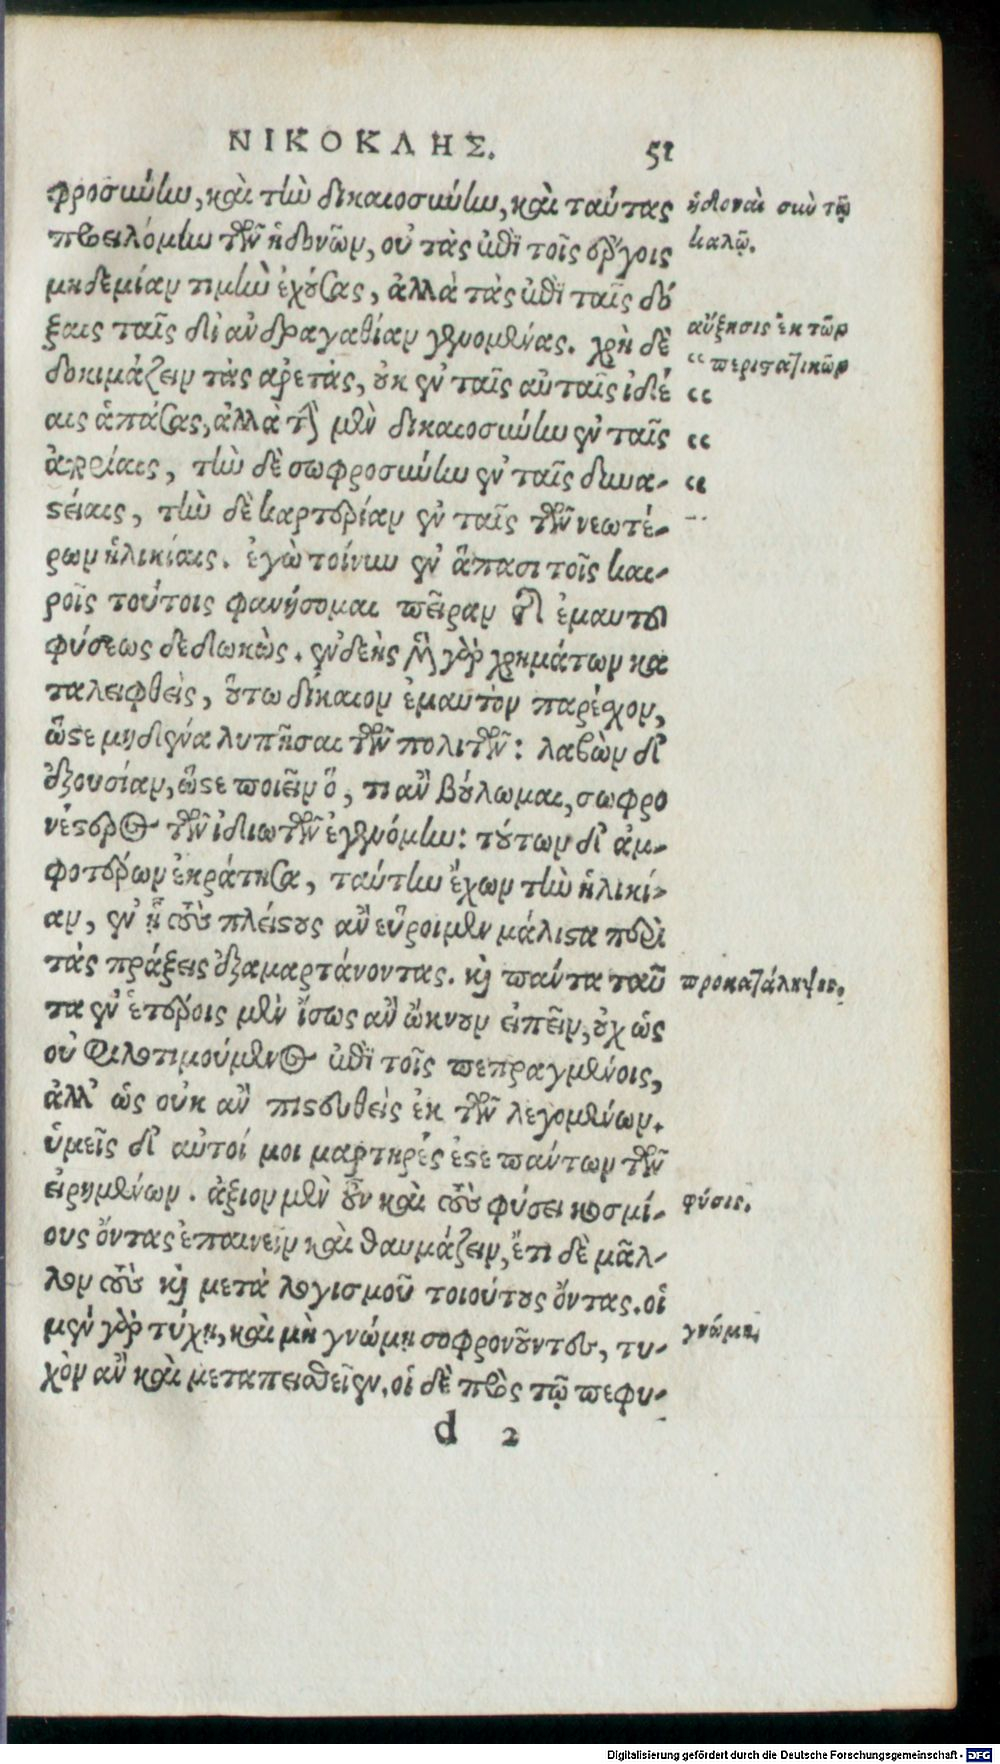 ΝΙΚΟΚΛΗΣ. 51
φροσωύην, καὶ τὴν δικαιοσύνην, καὶ ταύτας
προειλόμην τῶν ἡδονῶν, οὐ τὰς ἐπὶ τοῖς ἔργοις
μηδεμίαν τιμὴν ἐχούσας, ἀλλὰ τὰς ἐπὶ ταῖς δό
ξαις ταῖς δι' ἀνδραγαθίαν γενομένας. χρὴ δὲ
δοκιμάζειν τὰς ἀρετὰς, οὐκ ἐν ταῖς αὐταῖς ἰδέ
αις ἁπάσας, ἀλλὰ τὴν μὲν δικαιοσύνην ἐν ταῖς
ἀπορίαις, τὴν δὲ σωφροσύνην ἐν ταῖς δυνα-
στείαις, τὴν δὲ καρτερίαν ἐν ταῖς τῶν νεωτέ-
ρων ἡλικίαις. ἐγὼ τοίνυν ἐν ἅπασι τοῖς και-
ροῖς τούτοις φανήσομαι πεῖραν τῆς ἐμαυτοῦ
φύσεως δεδωκὼς. ἐνδεὴς μὲν γὰρ χρημάτων κα
ταλειφθεὶς, οὕτω δίκαιον ἐμαυτὸν παρέχον,
ὥστε μηδένα λυπῆσαι τῶν πολιτῶν: λαβὼν δ'
ἐξουσίαν, ὥστε ποιεῖν ὅ, τι ἂν βούλωμαι, σωφρο
νέστερος τῶν ἰδιωτῶν ἐγενόμην: τούτων δ' ἀμ-
φοτέρων ἐκράτησα, ταύτην ἔχων τὴν ἡλικί-
αν, ἐν ᾗ τοὺς πλείστους ἂν εὕροιμεν μάλιστα περὶ
τὰς πράξεις ἐξαμαρτάνοντας. καὶ πάντα ταῦ
τα ἐν ἑτέροις μὲν ἴσως ἂν ὤκνουν εἰπεῖν, οὐχ ὡς
οὐ φιλοτιμούμενος ἐπὶ τοῖς πεπραγμένοις,
ἀλλ' ὡς οὐκ ἂν πιστευθεὶς ἐκ τῶν λεγομένων.
ὑμεῖς δ' αὐτοί μοι μάρτηρές ἐστε πάντων τῶν
εἰρημένων. ἄξιον μὲν οὖν καὶ τοὺς φύσει κοσμί-
ους ὄντας ἐπαινεῖν καὶ θαυμάζειν, ἔτι δὲ μᾶλ-
λον τοὺς καὶ μετὰ λογισμοῦ τοιούτους ὄντας. οἱ
μὲν γὰρ τύχῃ, καὶ μὴ γνώμῃ σοφρονοῦντες, τυ-
χὸν ἂν καὶ μεταπεισθεῖεν. οἱ δὲ πρὸς τῷ πεφυ-
d 2
ἡδοναὶ σὺν τῷ
καλῷ.
αὔξησις ἐκ τῶν
“ περιστατικῶν
“
“
“
προκατάληψις.
φύσις.
γνώμη.
Digitalisierung gefördert durch die Deutsche Forschungsgemeinschaft - DFG